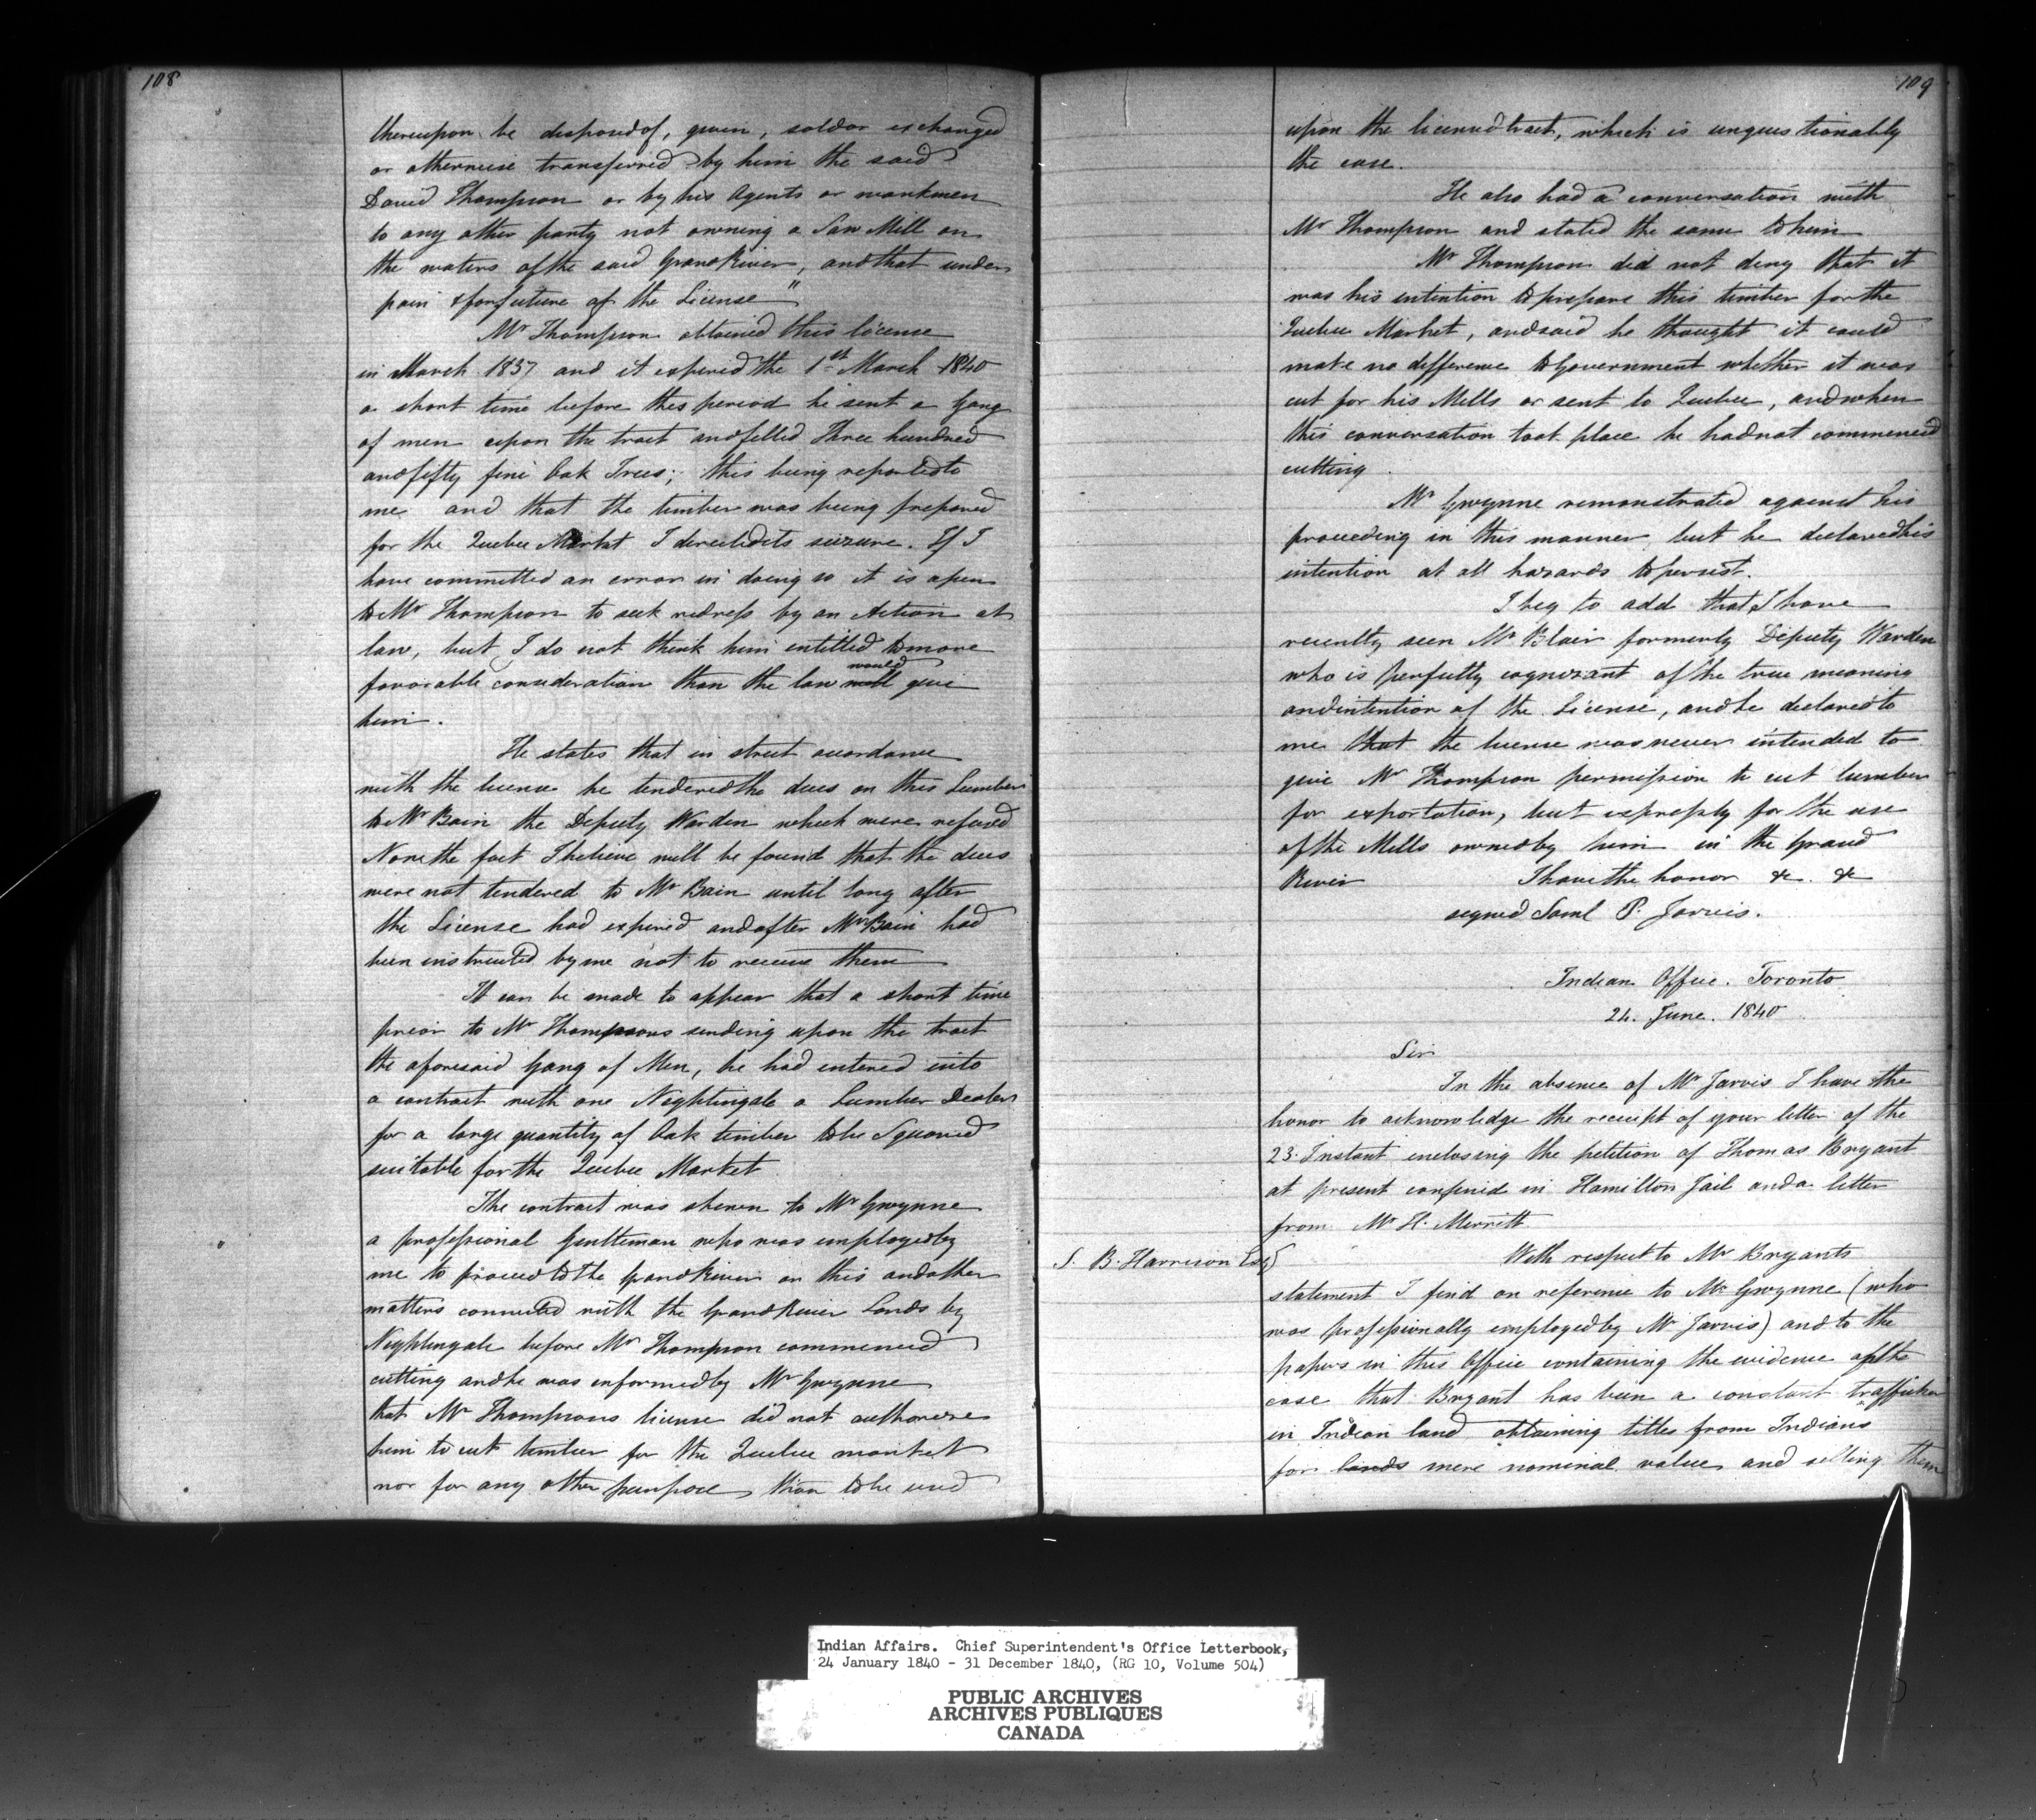 108
thereupon be disposed of, given, sold or exchanged
or otherwise transferred by him the said
David Thompson or by his Agents or workmen
to any other party not owning a Saw Mill on
the waters of the said Grand River, and that under
pain & forfeiture of the License"
Mr Thompson obtained this license
in March 1837 and it expired the 1st March 1840
a short time before this period he sent a Gang
of men upon the tract and felled Three hundred
and fifty fine Oak Trees; this being reported to
me and that the timber was being prepared
for the Quebec Market I directed its seizure. If I
have committed an error in doing so it is open
to Mr Thompson to seek redress by an Action at
law, but I do not think him entitled to more
favorable consideration than the law will would give
him.
He states that in strict accordance
with the license he tendered the dues on this Lumber
to Mr Bain the Deputy Warden which were refused
Now the fact I believe will be found that the dues
were not tendered to Mr Bain until long after
the License had expired and after Mr Bain had
been instructed by me not to receive them
It can be made to appear that a short time
prior to Mr Thompsons sending upon the tract
the aforesaid Gang of Men, he had entered into
a contract with one Nightingale a Lumber Dealer
for a large quantity of Oak timber to be Squared
suitable for the Quebec Market
The contract was shewn to Mr Gwynne
a professional Gentleman who was employed by
me to proceed to the Grand River on this and other
matters connected with the Grand River Lands by
Nightingale before Mr Thompson commenced
cutting and he was informed by Mr Gwynne
that Mr Thompsons license did not authorize
him to cut timber for the Quebec market
nor for any other purpose than to be used
109
upon the licensed tract, which is unquestionably
the case.
He also had a conversation with
Mr Thompson and stated the same to him
Mr Thompson did not deny that it
was his intention to prepare this timber for the
Quebec Market, and said he thought it could
make no difference to Government whether it was
cut for his Mills or sent to Quebec, and when
this conversation took place he had not commenced
cutting.
Mr Gwynne remonstrated against his
proceeding in this manner but he declared his
intention at all hazards to persist.
I beg to add that I have
recently seen Mr Blair formerly Deputy Warden
who is perfectly cognizant of the true meaning
and intention of the License, and he declared to
me that the license was never intended to
give Mr Thompson permission to cut lumber
for exportation, but expressly for the use
of the Mills owned by him in the Grand
River I have the honor &c. &c
signed Saml P. Jarvis.
Indian Office. Toronto
24. June. 1840
Sir
In the absence of Mr Jarvis I have the
honor to acknowledge the receipt of your letter of the
23. Instant enclosing the petition of Thomas Bryant
at present confined in Hamilton Jail and a letter
from Mr H. Merritt
S. B. Harrison Esq
With respect to Mr Bryants
statement I find on reference to Mr Gwynne (who
was professionally employed by Mr Jarvis) and to the
papers in this Office containing the evidence of the
case that Bryant has been a constant trafficker
in Indian land obtaining titles from Indians
for lands mere nominal value and selling them
Indian Affairs. Chief Superintendent's Office Letterbook,
24 January 1840 - 31 December 1840, (RG 10, Volume 504)
PUBLIC ARCHIVES
ARCHIVES PUBLIQUES
CANADA